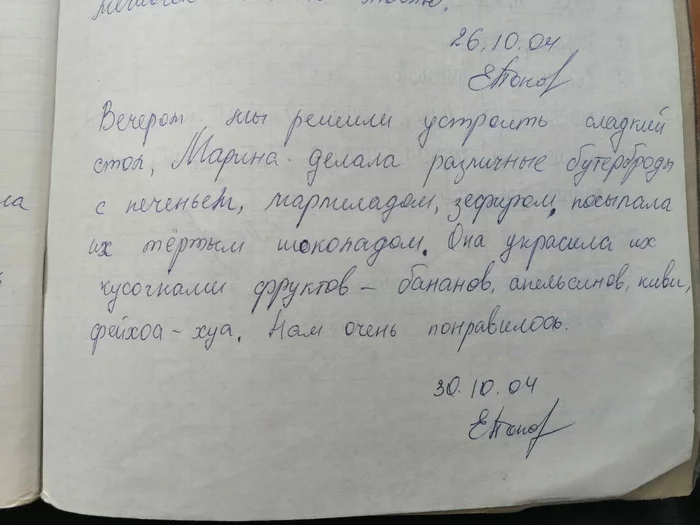 26.10.04
ЕПопов
Вечером мы решили устроить сладкий
стол, Марина делала различные бутерброды
с печеньем, мармеладом, зефиром, посыпала
их тёртым шоколадом. Она украсила их
кусочками фруктов – бананов, апельсинов, киви,
фейхоа-хуа. Нам очень понравилось.
30.10.04
ЕПопов